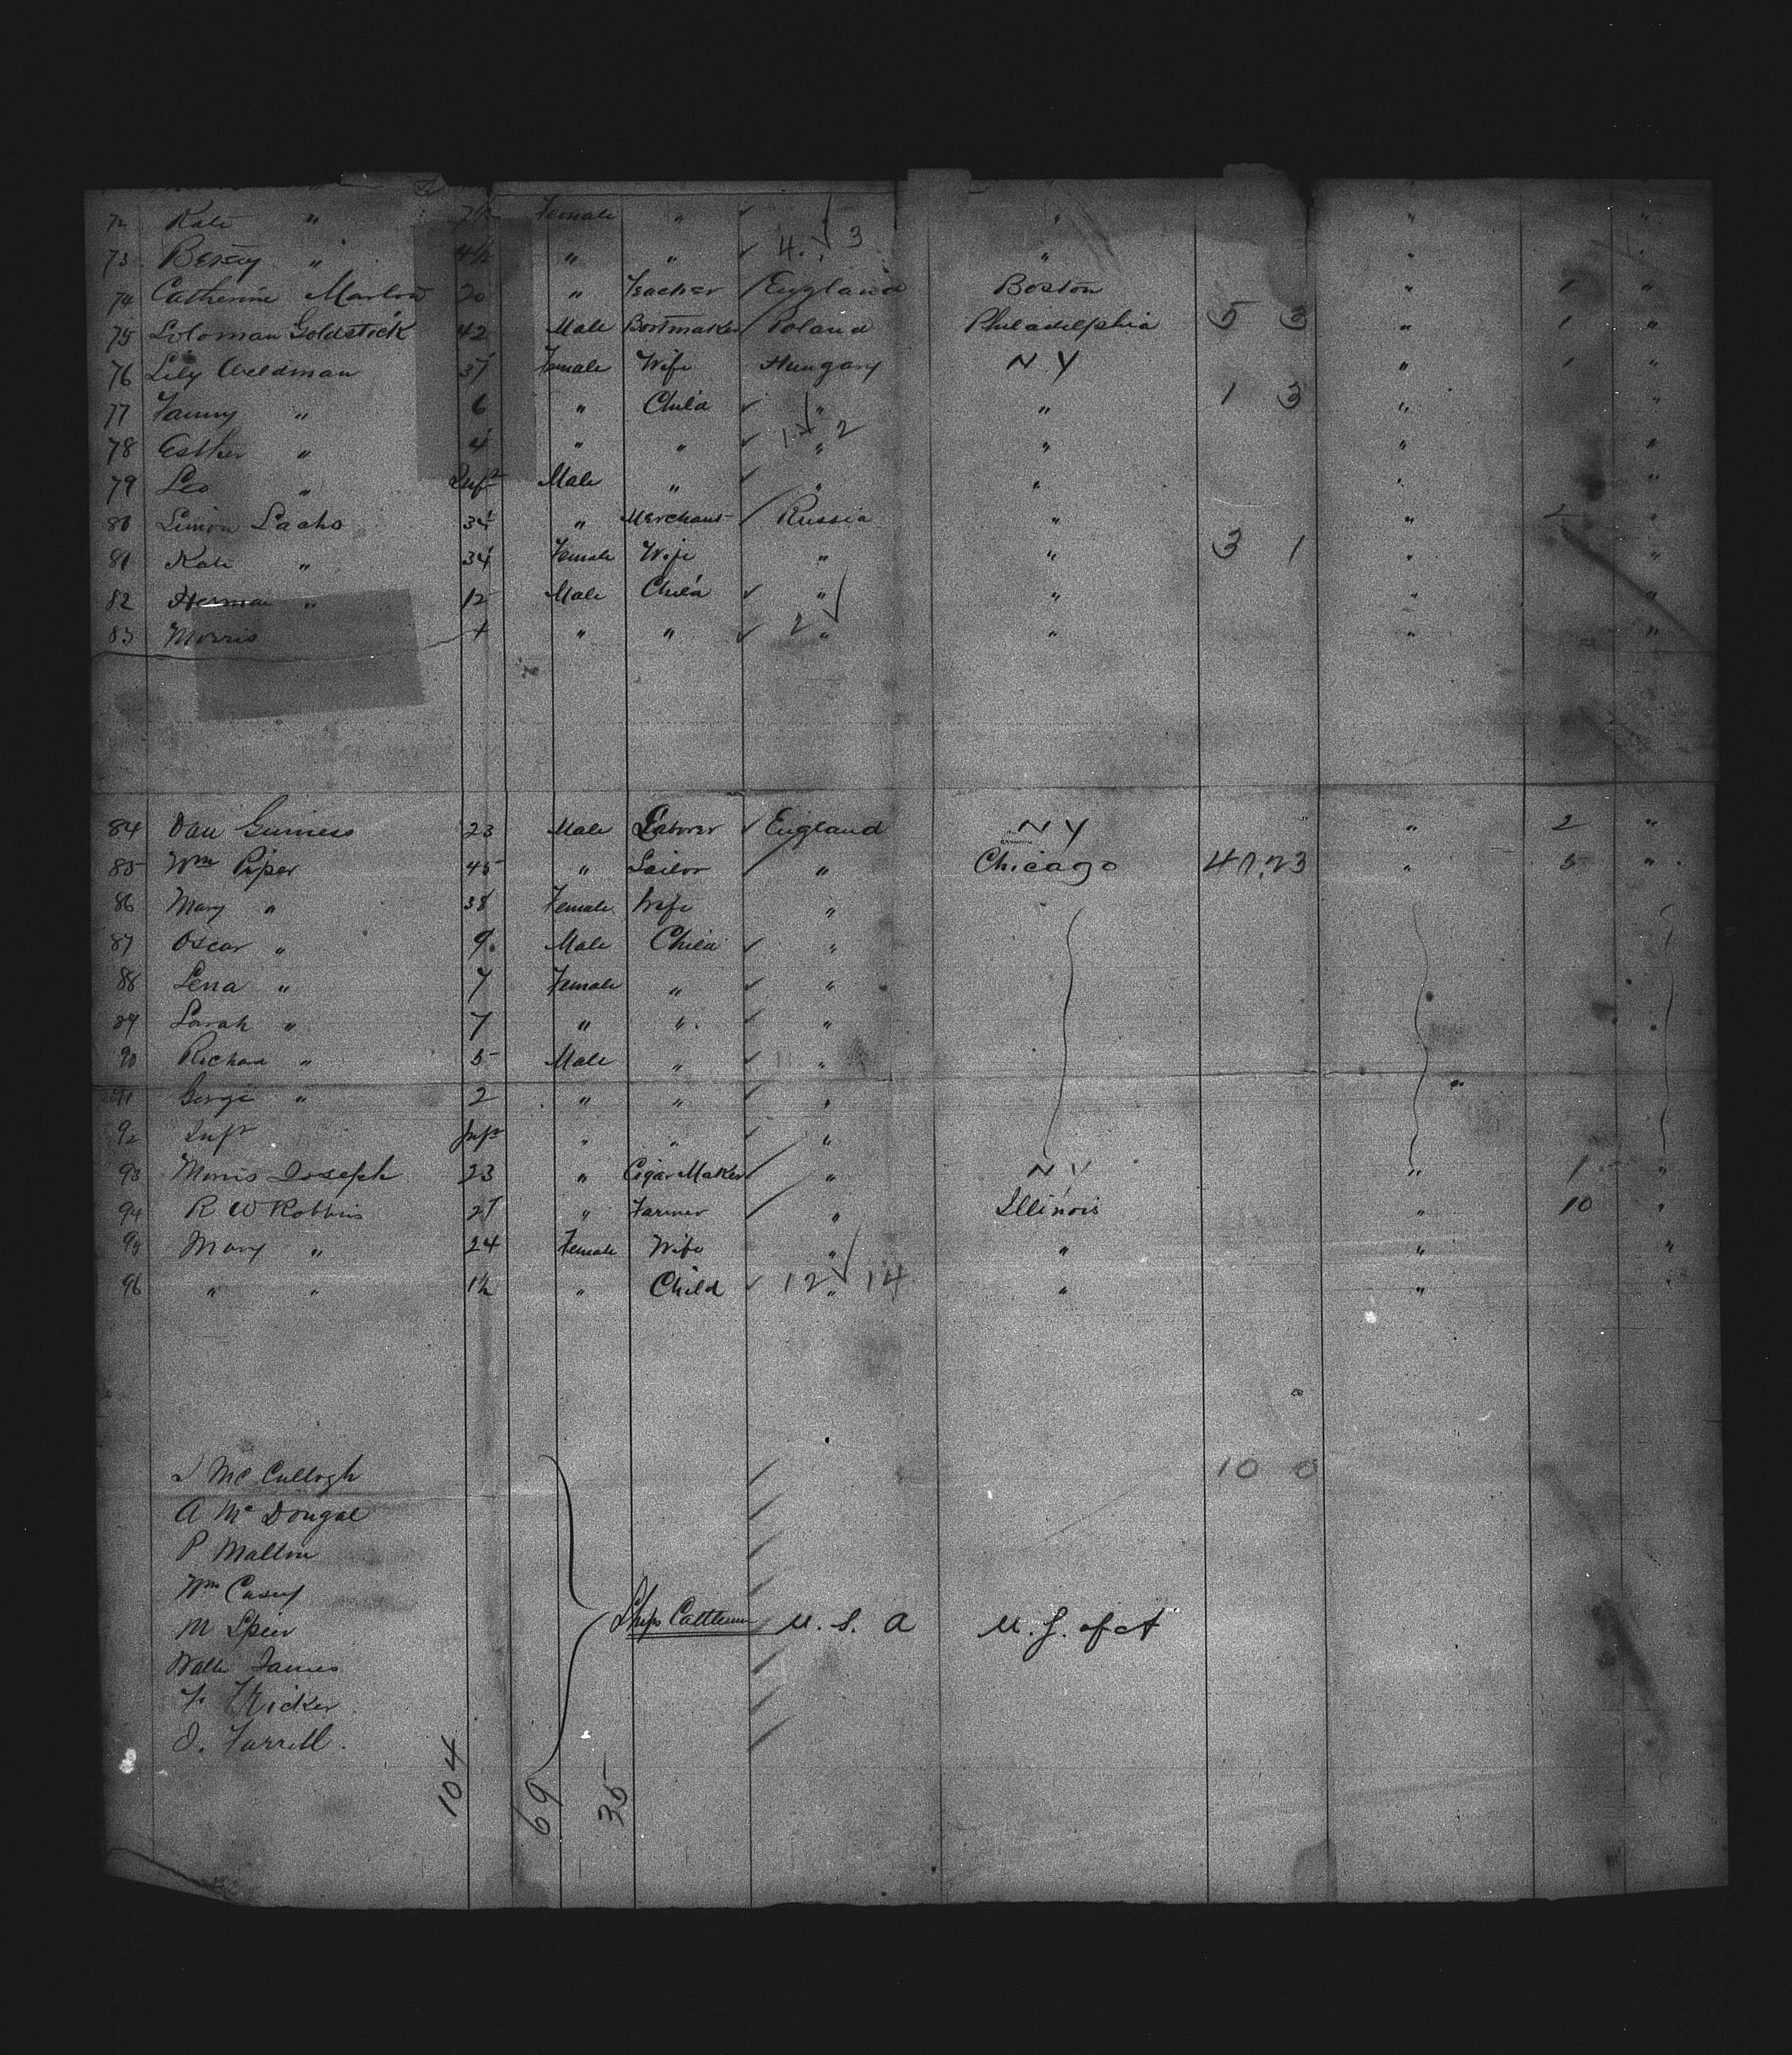 72 Kate " 7½ Female " ✓ " " " "
4. 3
73 Betsy " 4½ " " ✓ " " " "
74 Catherine Marlow 20 " Teacher / England Boston " 1 "
75 Soloman Goldstick 42 Male Bootmaker / Poland Philadelphia 5 3 " 1 "
76 Lily Weldman 37 Female Wife Hungary N Y " 1 "
77 Fanny " 6 " Child ✓ " " 1 3 " "
1 2
78 Esther " 4 " " ✓ " " " "
79 Leo " Inft Male " ✓ " " " "
80 Simon Sachs 34 " Merchant / Russia " " "
81 Kate " 34 Female Wife " " 3 1 " "
82 Herman " 12 Male Child ✓ " " " "
83 Morris " " ✓ 2 " " " "
84 Dan Guiness 23 Male Laborer ✓ England N Y " 2 "
85 Wm Piper 45 " Sailor / " Chicago 47.23 " 5 "
86 Mary " 38 Female Wife "
87 Oscar " 9 Male Child ✓ "
88 Lena " 7 Female " ✓ "
89 Sarah " 7 " " ✓ "
90 Richard " 5 Male " ✓ "
91 George " 2 " " ✓ "
92 Inft Inft " " ✓ "
93 Morris Joseph 23 " Cigar Maker / " N Y " 1 "
94 R W Robbins 27 " Farmer / " Illinois " 10 "
95 Mary " 24 Female Wife " " " "
96 " " 1½ " Child ✓ 12 " 14 " "
J McCullogh / 10 0
A McDougal /
P Mallon /
Wm Casey /
M Speir Ships Cattlemen / U. S. A U. S. of A
Walter James /
F. Tricker /
J. Farrell. /
104 69 35